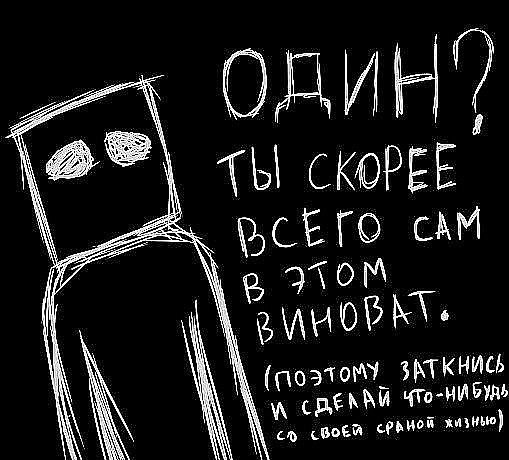 ОДИН?
ТЫ СКОРЕЕ
ВСЕГО САМ
В ЭТОМ
ВИНОВАТ.
(ПОЭТОМУ ЗАТКНИСЬ
И СДЕЛАЙ ЧТО-НИБУДЬ
СО СВОЕЙ СРАНОЙ ЖИЗНЬЮ)